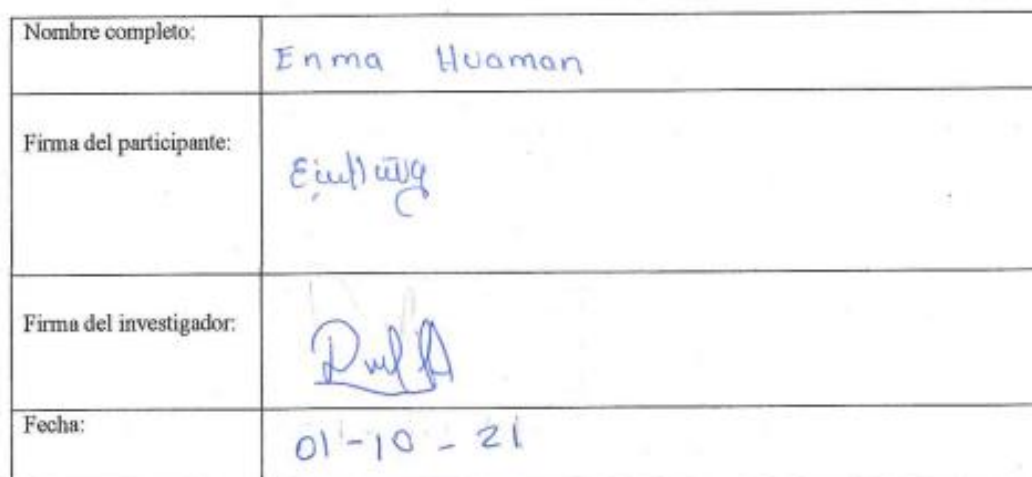 Nombre completo:
Enma Huaman
Firma del participante:
Firma del investigador:
Fecha:
01-10-21